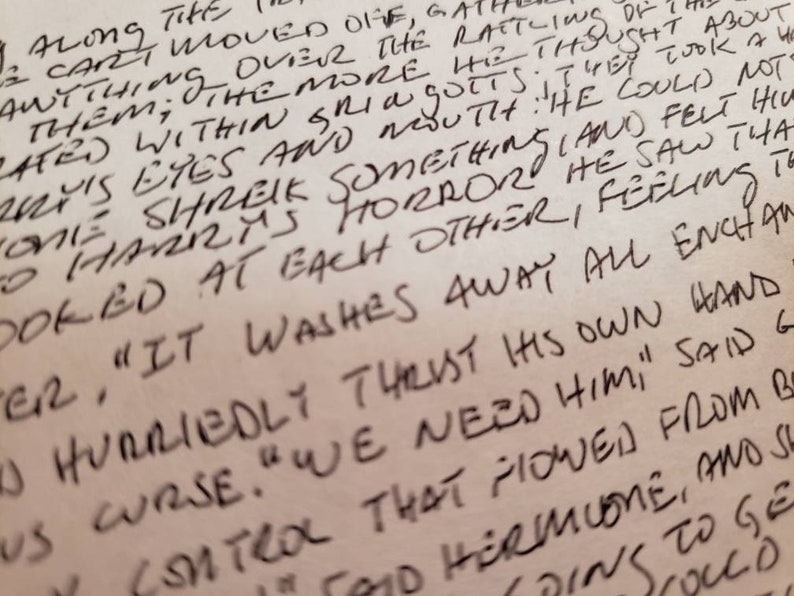 ALONG THE
CART MOVED OFF, GATHER
ANYTHING OVER THE RATTLING OF THE
THEM; THE MORE HE THOUGHT ABOUT
RATED WITHIN GRINGOTTS; THEY TOOK A
RRY'S EYES AND MOUTH: HE COULD NOT
IONE SHREIK SOMETHING, AND FELT HIM
TO HARRY'S HORROR HE SAW THA
OOKED AT EACH OTHER, FEELING TH
TER, "IT WASHES AWAY ALL ENCHAN
D HURRIEDLY THRUST HIS OWN HAND
US CURSE. "WE NEED HIM," SAID G
CONTROL THAT FLOWED FROM B
" SAID HERMIONE, AND SH
GOING TO GE
COULD